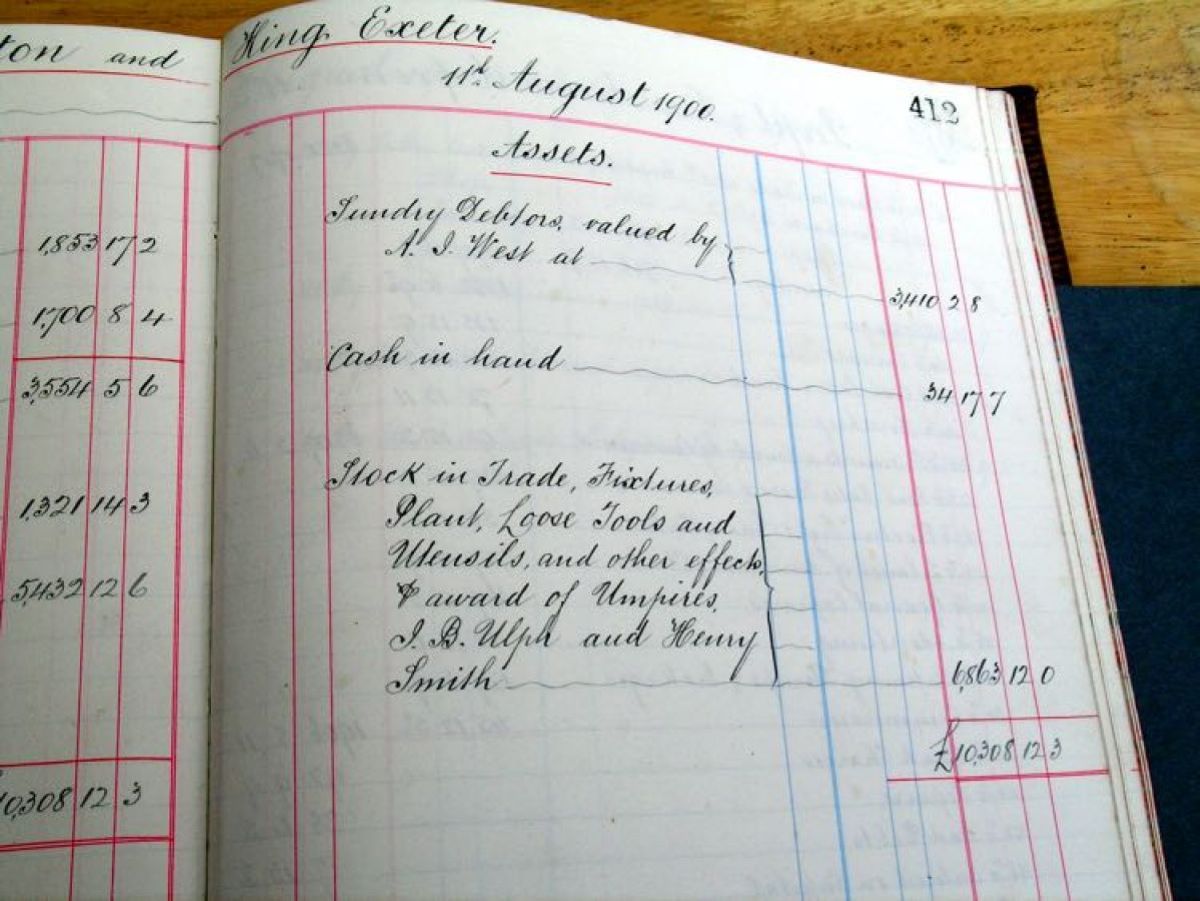 ton and
1,853 17 2
1,700 8 4
3,554 5 6
1,321 14 3
5,432 12 6
10,308 12 3
King Exeter.
11th August 1900.
412
Assets.
Sundry Debtors, valued by
A. J. West at
3,410 2 8
Cash in hand
34 17 7
Stock in Trade, Fixtures,
Plant, Loose Tools and
Utensils, and other effects,
award of Umpires,
J. B. Ulph and Henry
Smith 6,863 12 0
£10,308 12 3